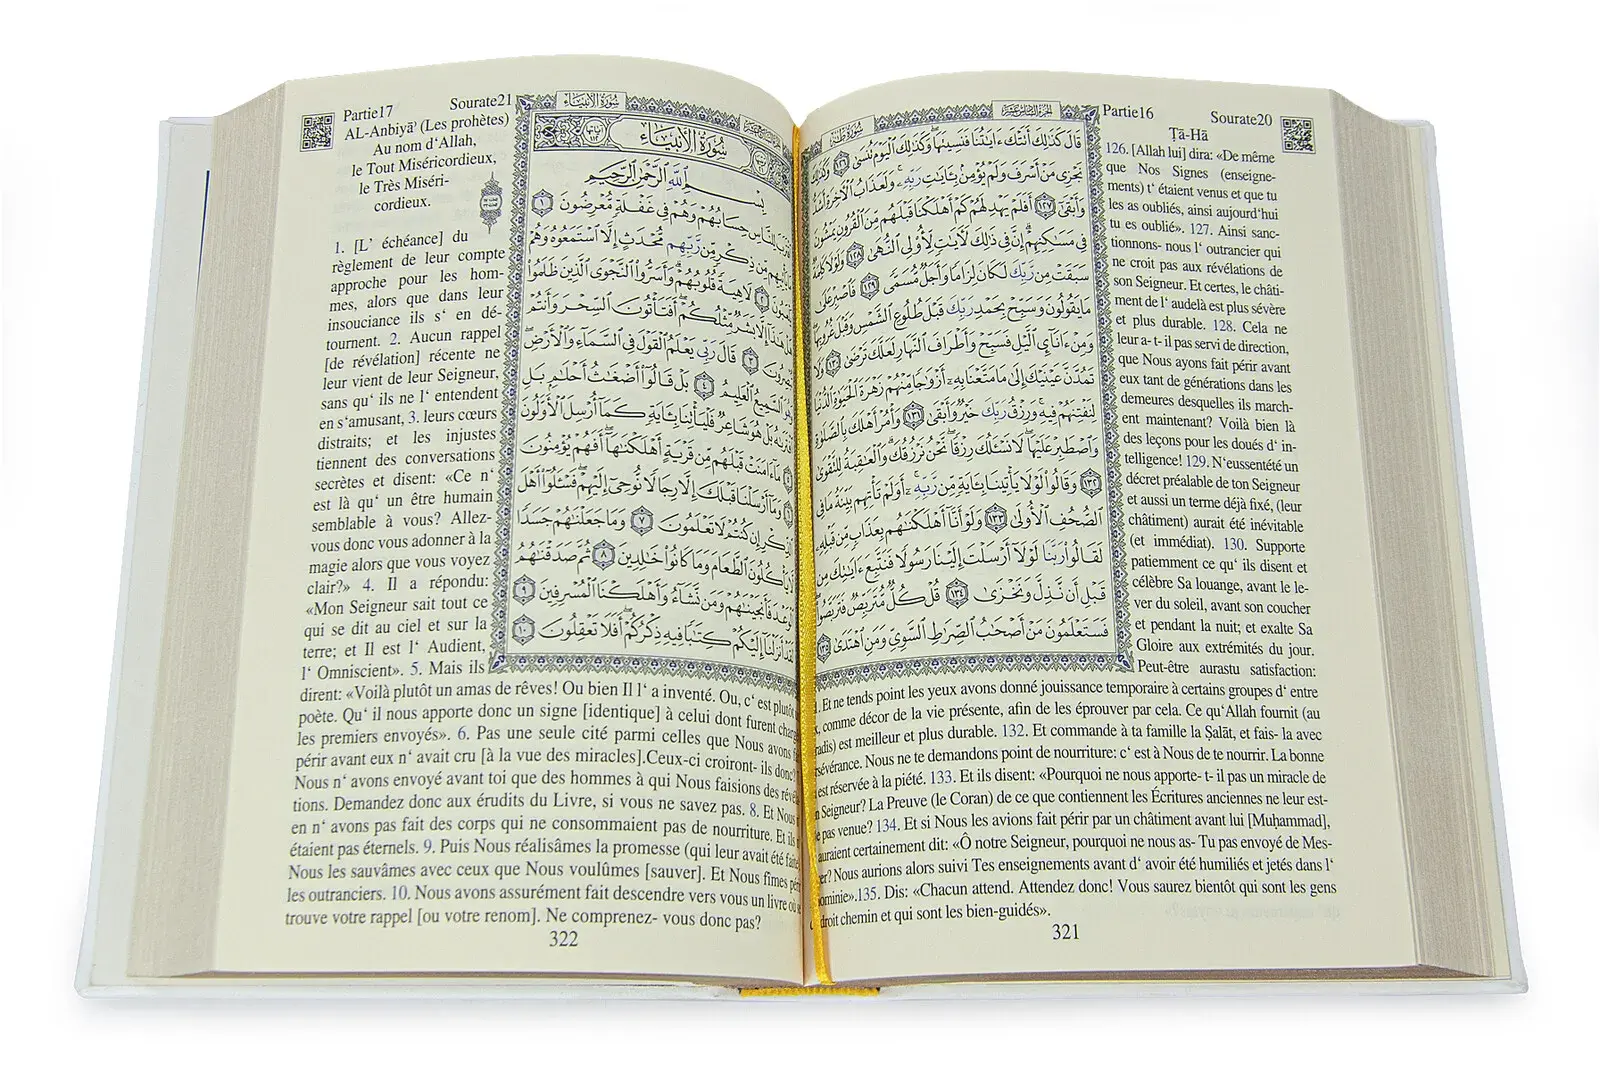 Partie16 Sourate20
Ṭā-Hā
سُورَةُ طه
الجُزْءُ السَّادِسَ عَشَرَ
قَالَ كَذَٰلِكَ أَتَتْكَ ءَايَٰتُنَا فَنَسِيتَهَا ۖ وَكَذَٰلِكَ ٱلْيَوْمَ تُنسَىٰ ١٢٦ وَكَذَٰلِكَ
نَجْزِى مَنْ أَسْرَفَ وَلَمْ يُؤْمِنۢ بِـَٔايَٰتِ رَبِّهِۦ ۚ وَلَعَذَابُ ٱلْـَٔاخِرَةِ أَشَدُّ
وَأَبْقَىٰٓ ١٢٧ أَفَلَمْ يَهْدِ لَهُمْ كَمْ أَهْلَكْنَا قَبْلَهُم مِّنَ ٱلْقُرُونِ يَمْشُونَ
فِى مَسَٰكِنِهِمْ ۗ إِنَّ فِى ذَٰلِكَ لَـَٔايَٰتٍ لِّأُو۟لِى ٱلنُّهَىٰ ١٢٨ وَلَوْلَا كَلِمَةٌ
سَبَقَتْ مِن رَّبِّكَ لَكَانَ لِزَامًا وَأَجَلٌ مُّسَمًّى ١٢٩ فَٱصْبِرْ عَلَىٰ
مَا يَقُولُونَ وَسَبِّحْ بِحَمْدِ رَبِّكَ قَبْلَ طُلُوعِ ٱلشَّمْسِ وَقَبْلَ غُرُوبِهَا ۖ
وَمِنْ ءَانَآئِ ٱلَّيْلِ فَسَبِّحْ وَأَطْرَافَ ٱلنَّهَارِ لَعَلَّكَ تَرْضَىٰ ١٣٠ وَلَا
تَمُدَّنَّ عَيْنَيْكَ إِلَىٰ مَا مَتَّعْنَا بِهِۦٓ أَزْوَٰجًا مِّنْهُمْ زَهْرَةَ ٱلْحَيَوٰةِ ٱلدُّنْيَا
لِنَفْتِنَهُمْ فِيهِ ۚ وَرِزْقُ رَبِّكَ خَيْرٌ وَأَبْقَىٰ ١٣١ وَأْمُرْ أَهْلَكَ بِٱلصَّلَوٰةِ
وَٱصْطَبِرْ عَلَيْهَا ۖ لَا نَسْـَٔلُكَ رِزْقًا ۖ نَّحْنُ نَرْزُقُكَ ۗ وَٱلْعَٰقِبَةُ لِلتَّقْوَىٰ
١٣٢ وَقَالُوا۟ لَوْلَا يَأْتِينَا بِـَٔايَةٍ مِّن رَّبِّهِۦٓ ۚ أَوَلَمْ تَأْتِهِم بَيِّنَةُ مَا فِى
ٱلصُّحُفِ ٱلْأُولَىٰ ١٣٣ وَلَوْ أَنَّآ أَهْلَكْنَٰهُم بِعَذَابٍ مِّن قَبْلِهِۦ
لَقَالُوا۟ رَبَّنَا لَوْلَآ أَرْسَلْتَ إِلَيْنَا رَسُولًا فَنَتَّبِعَ ءَايَٰتِكَ مِن
قَبْلِ أَن نَّذِلَّ وَنَخْزَىٰ ١٣٤ قُلْ كُلٌّ مُّتَرَبِّصٌ فَتَرَبَّصُوا۟ ۖ
فَسَتَعْلَمُونَ مَنْ أَصْحَٰبُ ٱلصِّرَٰطِ ٱلسَّوِىِّ وَمَنِ ٱهْتَدَىٰ ١٣٥
126. [Allah lui] dira: «De même
que Nos Signes (enseigne-
ments) t‘ étaient venus et que tu
les as oubliés, ainsi aujourd‘hui
tu es oublié». 127. Ainsi sanc-
tionnons- nous l‘ outrancier qui
ne croit pas aux révélations de
son Seigneur. Et certes, le châti-
ment de l‘ audelà est plus sévère
et plus durable. 128. Cela ne
leur a- t- il pas servi de direction,
que Nous ayons fait périr avant
eux tant de générations dans les
demeures desquelles ils march-
ent maintenant? Voilà bien là
des leçons pour les doués d‘ in-
telligence! 129. N‘eussentété un
décret préalable de ton Seigneur
et aussi un terme déjà fixé, (leur
châtiment) aurait été inévitable
(et immédiat). 130. Supporte
patiemment ce qu‘ ils disent et
célèbre Sa louange, avant le le-
ver du soleil, avant son coucher
et pendant la nuit; et exalte Sa
Gloire aux extrémités du jour.
Peut-être aurastu satisfaction:
. Et ne tends point les yeux avons donné jouissance temporaire à certains groupes d‘ entre
, comme décor de la vie présente, afin de les éprouver par cela. Ce qu‘Allah fournit (au
radis) est meilleur et plus durable. 132. Et commande à ta famille la Ṣalāt, et fais- la avec
rsévérance. Nous ne te demandons point de nourriture: c‘ est à Nous de te nourrir. La bonne
est réservée à la piété. 133. Et ils disent: «Pourquoi ne nous apporte- t- il pas un miracle de
n Seigneur? La Preuve (le Coran) de ce que contiennent les Écritures anciennes ne leur est-
e pas venue? 134. Et si Nous les avions fait périr par un châtiment avant lui [Muḥammad],
auraient certainement dit: «Ô notre Seigneur, pourquoi ne nous as- Tu pas envoyé de Mes-
er? Nous aurions alors suivi Tes enseignements avant d‘ avoir été humiliés et jetés dans l‘
ominie».135. Dis: «Chacun attend. Attendez donc! Vous saurez bientôt qui sont les gens
droit chemin et qui sont les bien-guidés».
321
Partie17 Sourate21
AL-Anbiyāʾ (Les prohètes)
Au nom d‘Allah,
le Tout Miséricordieux,
le Très Miséri-
cordieux.
سُورَةُ الأَنبِيَاءِ
سُورَةُ الأَنبِيَاءِ
بِسْمِ ٱللَّهِ ٱلرَّحْمَٰنِ ٱلرَّحِيمِ
لِلنَّاسِ حِسَابُهُمْ وَهُمْ فِى غَفْلَةٍ مُّعْرِضُونَ ١
مِّن ذِكْرٍ مِّن رَّبِّهِم مُّحْدَثٍ إِلَّا ٱسْتَمَعُوهُ وَهُمْ
٢ لَاهِيَةً قُلُوبُهُمْ ۗ وَأَسَرُّوا۟ ٱلنَّجْوَى ٱلَّذِينَ ظَلَمُوا۟
هَٰذَآ إِلَّا بَشَرٌ مِّثْلُكُمْ ۖ أَفَتَأْتُونَ ٱلسِّحْرَ وَأَنتُمْ
٣ قَالَ رَبِّى يَعْلَمُ ٱلْقَوْلَ فِى ٱلسَّمَآءِ وَٱلْأَرْضِ ۖ
ٱلسَّمِيعُ ٱلْعَلِيمُ ٤ بَلْ قَالُوٓا۟ أَضْغَٰثُ أَحْلَٰمٍۭ بَلِ
بَلْ هُوَ شَاعِرٌ فَلْيَأْتِنَا بِـَٔايَةٍ كَمَآ أُرْسِلَ ٱلْأَوَّلُونَ
مَآ ءَامَنَتْ قَبْلَهُم مِّن قَرْيَةٍ أَهْلَكْنَٰهَآ ۖ أَفَهُمْ يُؤْمِنُونَ
٦ وَمَآ أَرْسَلْنَا قَبْلَكَ إِلَّا رِجَالًا نُّوحِىٓ إِلَيْهِمْ ۖ فَسْـَٔلُوٓا۟ أَهْلَ
ٱلذِّكْرِ إِن كُنتُمْ لَا تَعْلَمُونَ ٧ وَمَا جَعَلْنَٰهُمْ جَسَدًا
يَأْكُلُونَ ٱلطَّعَامَ وَمَا كَانُوا۟ خَٰلِدِينَ ٨ ثُمَّ صَدَقْنَٰهُمُ
ٱلْوَعْدَ فَأَنجَيْنَٰهُمْ وَمَن نَّشَآءُ وَأَهْلَكْنَا ٱلْمُسْرِفِينَ ٩
لَقَدْ أَنزَلْنَآ إِلَيْكُمْ كِتَٰبًا فِيهِ ذِكْرُكُمْ ۖ أَفَلَا تَعْقِلُونَ ١٠
1. [L‘ échéance] du
règlement de leur compte
approche pour les hom-
mes, alors que dans leur
insouciance ils s‘ en dé-
tournent. 2. Aucun rappel
[de révélation] récente ne
leur vient de leur Seigneur,
sans qu‘ ils ne l‘ entendent
en s‘amusant, 3. leurs cœurs
distraits; et les injustes
tiennent des conversations
secrètes et disent: «Ce n‘
est là qu‘ un être humain
semblable à vous? Allez-
vous donc vous adonner à la
magie alors que vous voyez
clair?» 4. Il a répondu:
«Mon Seigneur sait tout ce
qui se dit au ciel et sur la
terre; et Il est l‘ Audient,
l‘ Omniscient». 5. Mais ils
dirent: «Voilà plutôt un amas de rêves! Ou bien Il l‘ a inventé. Ou, c‘ est plutôt
poète. Qu‘ il nous apporte donc un signe [identique] à celui dont furent charg
les premiers envoyés». 6. Pas une seule cité parmi celles que Nous avons
périr avant eux n‘ avait cru [à la vue des miracles].Ceux-ci croiront- ils donc?
Nous n‘ avons envoyé avant toi que des hommes à qui Nous faisions des révé
tions. Demandez donc aux érudits du Livre, si vous ne savez pas. 8. Et Nous
en n‘ avons pas fait des corps qui ne consommaient pas de nourriture. Et ils
étaient pas éternels. 9. Puis Nous réalisâmes la promesse (qui leur avait été faite
Nous les sauvâmes avec ceux que Nous voulûmes [sauver]. Et Nous fîmes pér
les outranciers. 10. Nous avons assurément fait descendre vers vous un livre où
trouve votre rappel [ou votre renom]. Ne comprenez- vous donc pas?
322